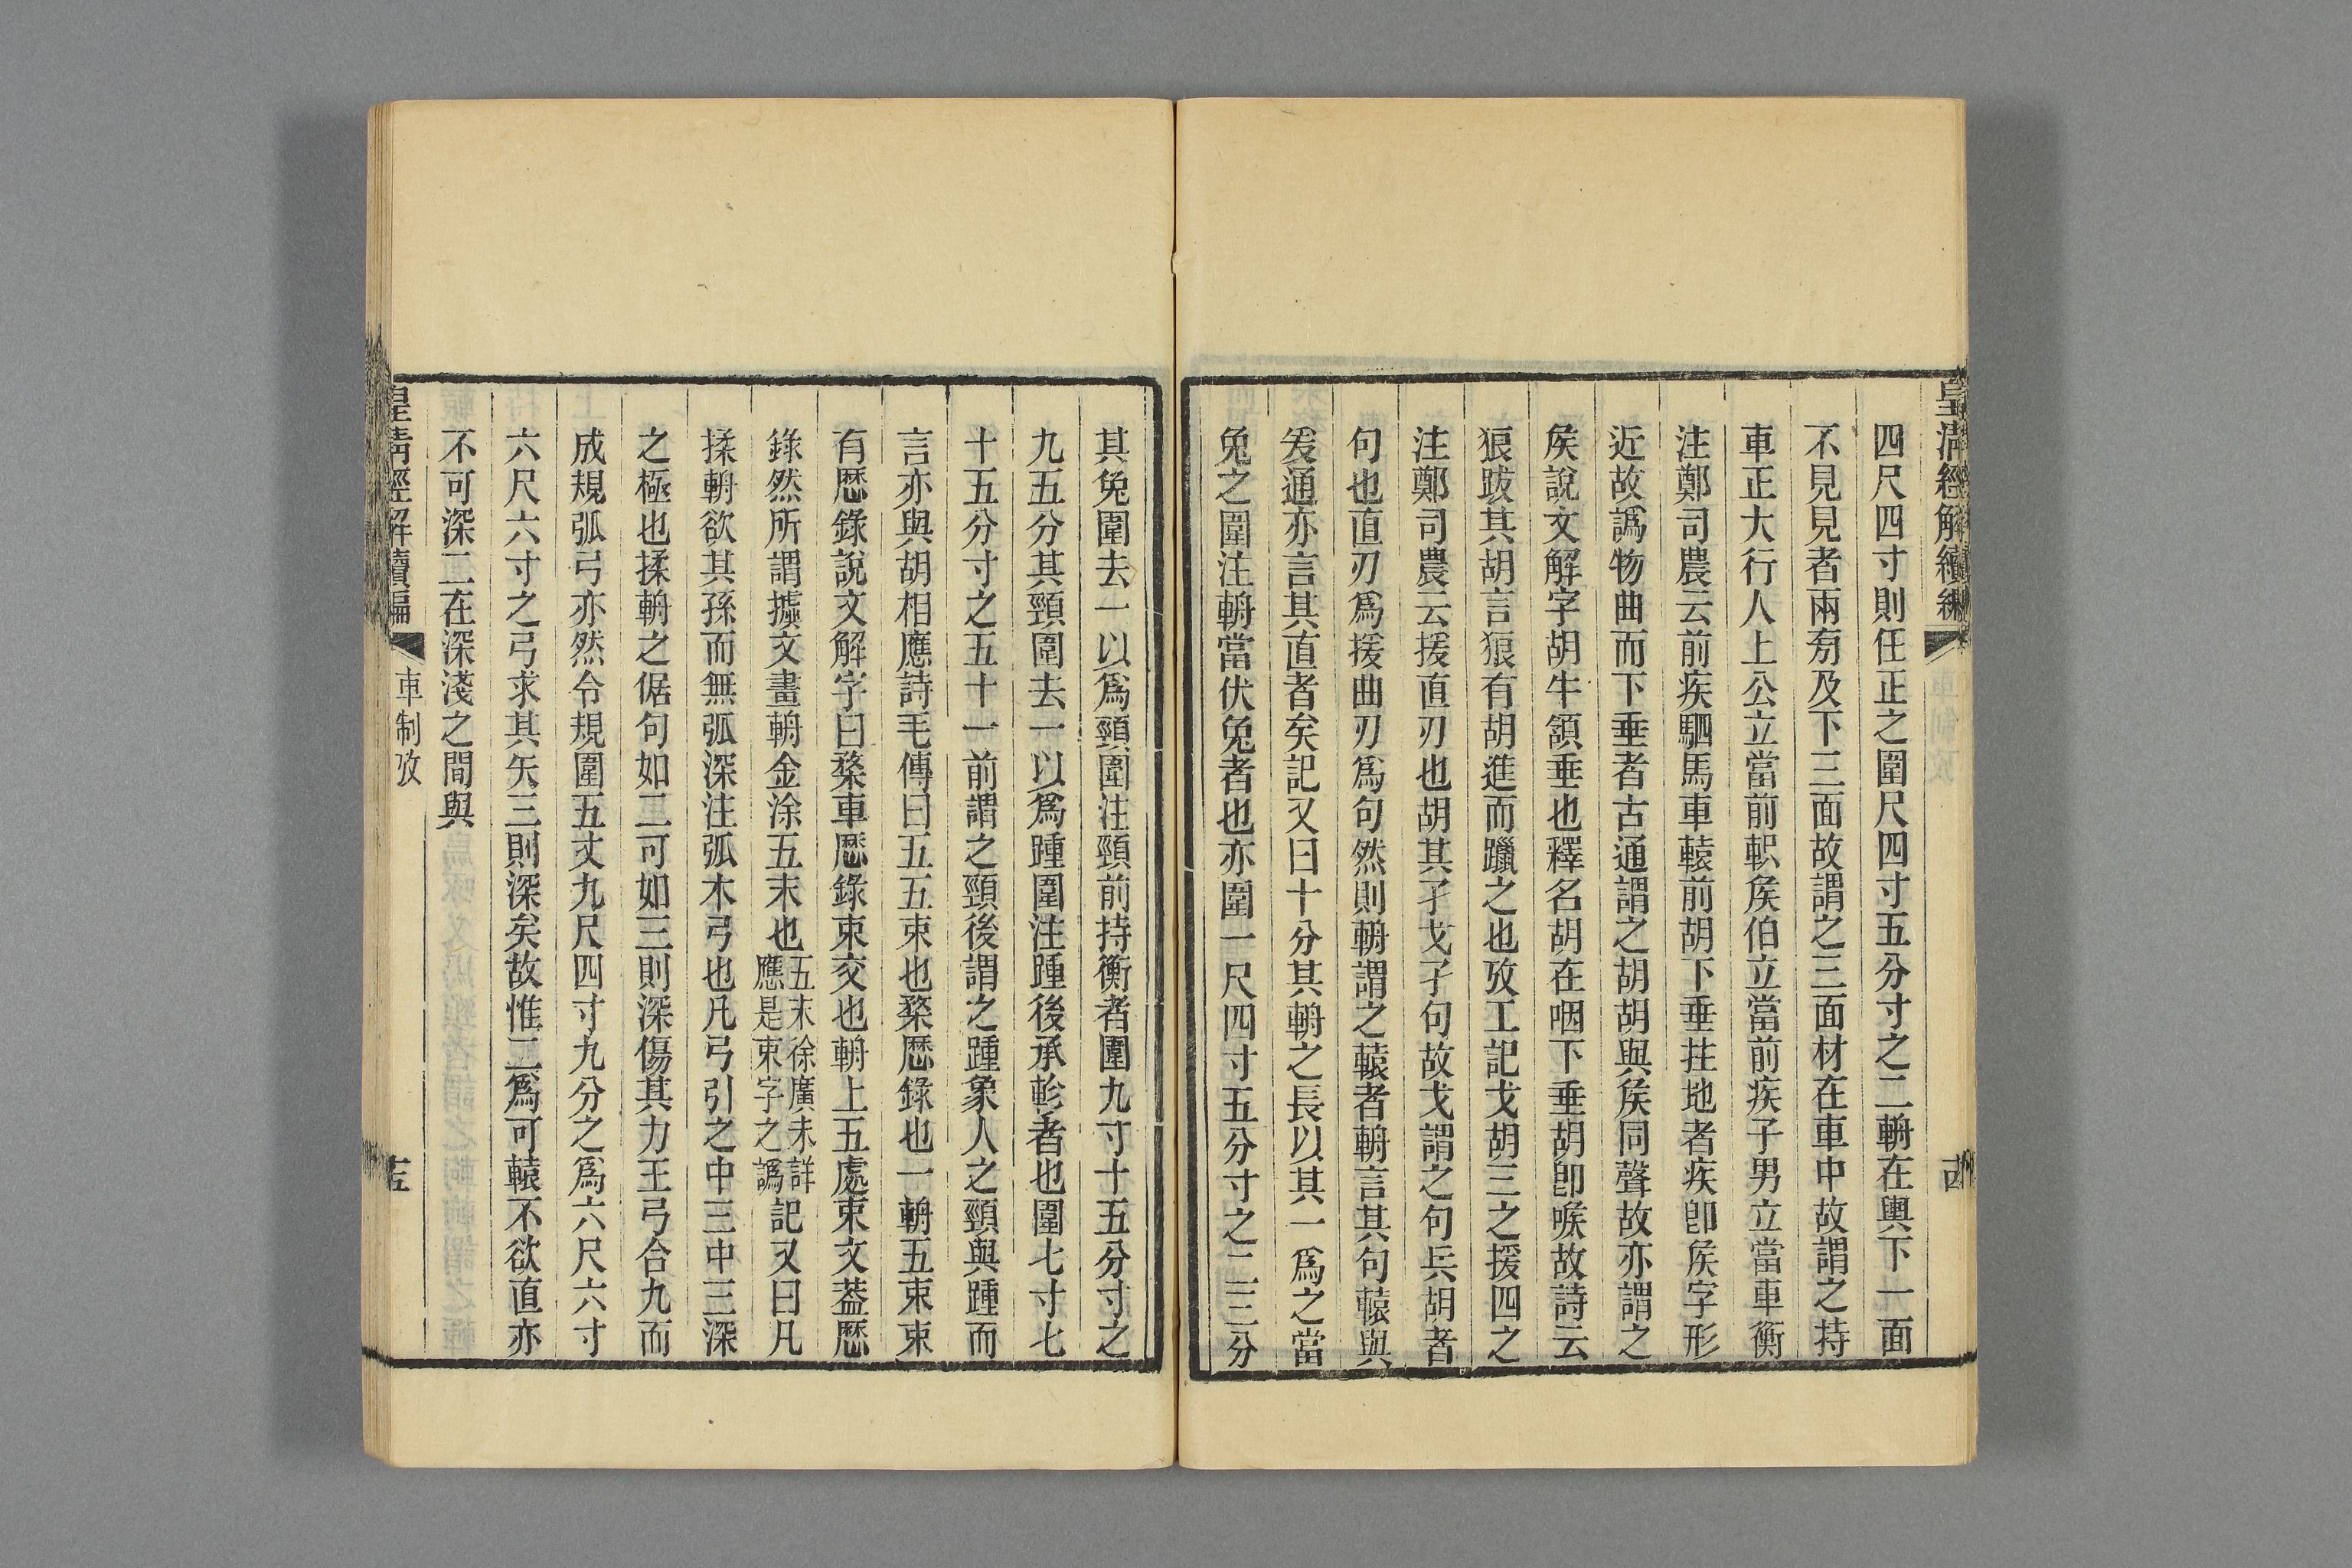 皇清經解續編
四尺四寸則任正之圍尺四寸五分寸之二輈在輿下一面
不見見者兩旁及下三面故謂之三面材在車中故謂之持
車正大行人上公立當前軹矦伯立當前疾子男立當車衡
注鄭司農云前疾駟馬車轅前胡下垂拄地者疾卽矦字形
近故譌物曲而下垂者古通謂之胡胡與矦同聲故亦謂之
矦說文解字胡牛頷垂也釋名胡在咽下垂胡卽喉故詩云
狼跋其胡言狼有胡進而躐之也攷工記戈胡三之援四之
注鄭司農云援直刃也胡其孑戈孑句故戈謂之句兵胡者
句也直刃爲援曲刃爲句然則輈謂之轅者輈言其句轅與
爰通亦言其直者矣記又曰十分其輈之長以其一爲之當
兔之圍注輈當伏兔者也亦圍一尺四寸五分寸之二三分
其兔圍去一以爲頸圍注頸前持衡者圍九寸十五分寸之
九五分其頸圍去一以爲踵圍注踵後承軫者也圍七寸七
十五分寸之五十一前謂之頸後謂之踵象人之頸與踵而
言亦與胡相應詩毛傳曰五五束也楘歴錄也一輈五束束
有歴錄說文解字曰楘車歴錄束交也輈上五處束文葢歴
錄然所謂㨿文畫輈金涂五末也五末徐廣未詳
應是束字之譌記又曰凡
揉輈欲其孫而無弧深注弧木弓也凡弓引之中三中三深
之極也揉輈之倨句如二可如三則深傷其力王弓合九而
成規弧弓亦然令規圍五丈九尺四寸九分之爲六尺六寸
六尺六寸之弓求其矢三則深矣故惟二爲可轅不欲直亦
不可深二在深淺之間與
皇清經解續編
車制攷